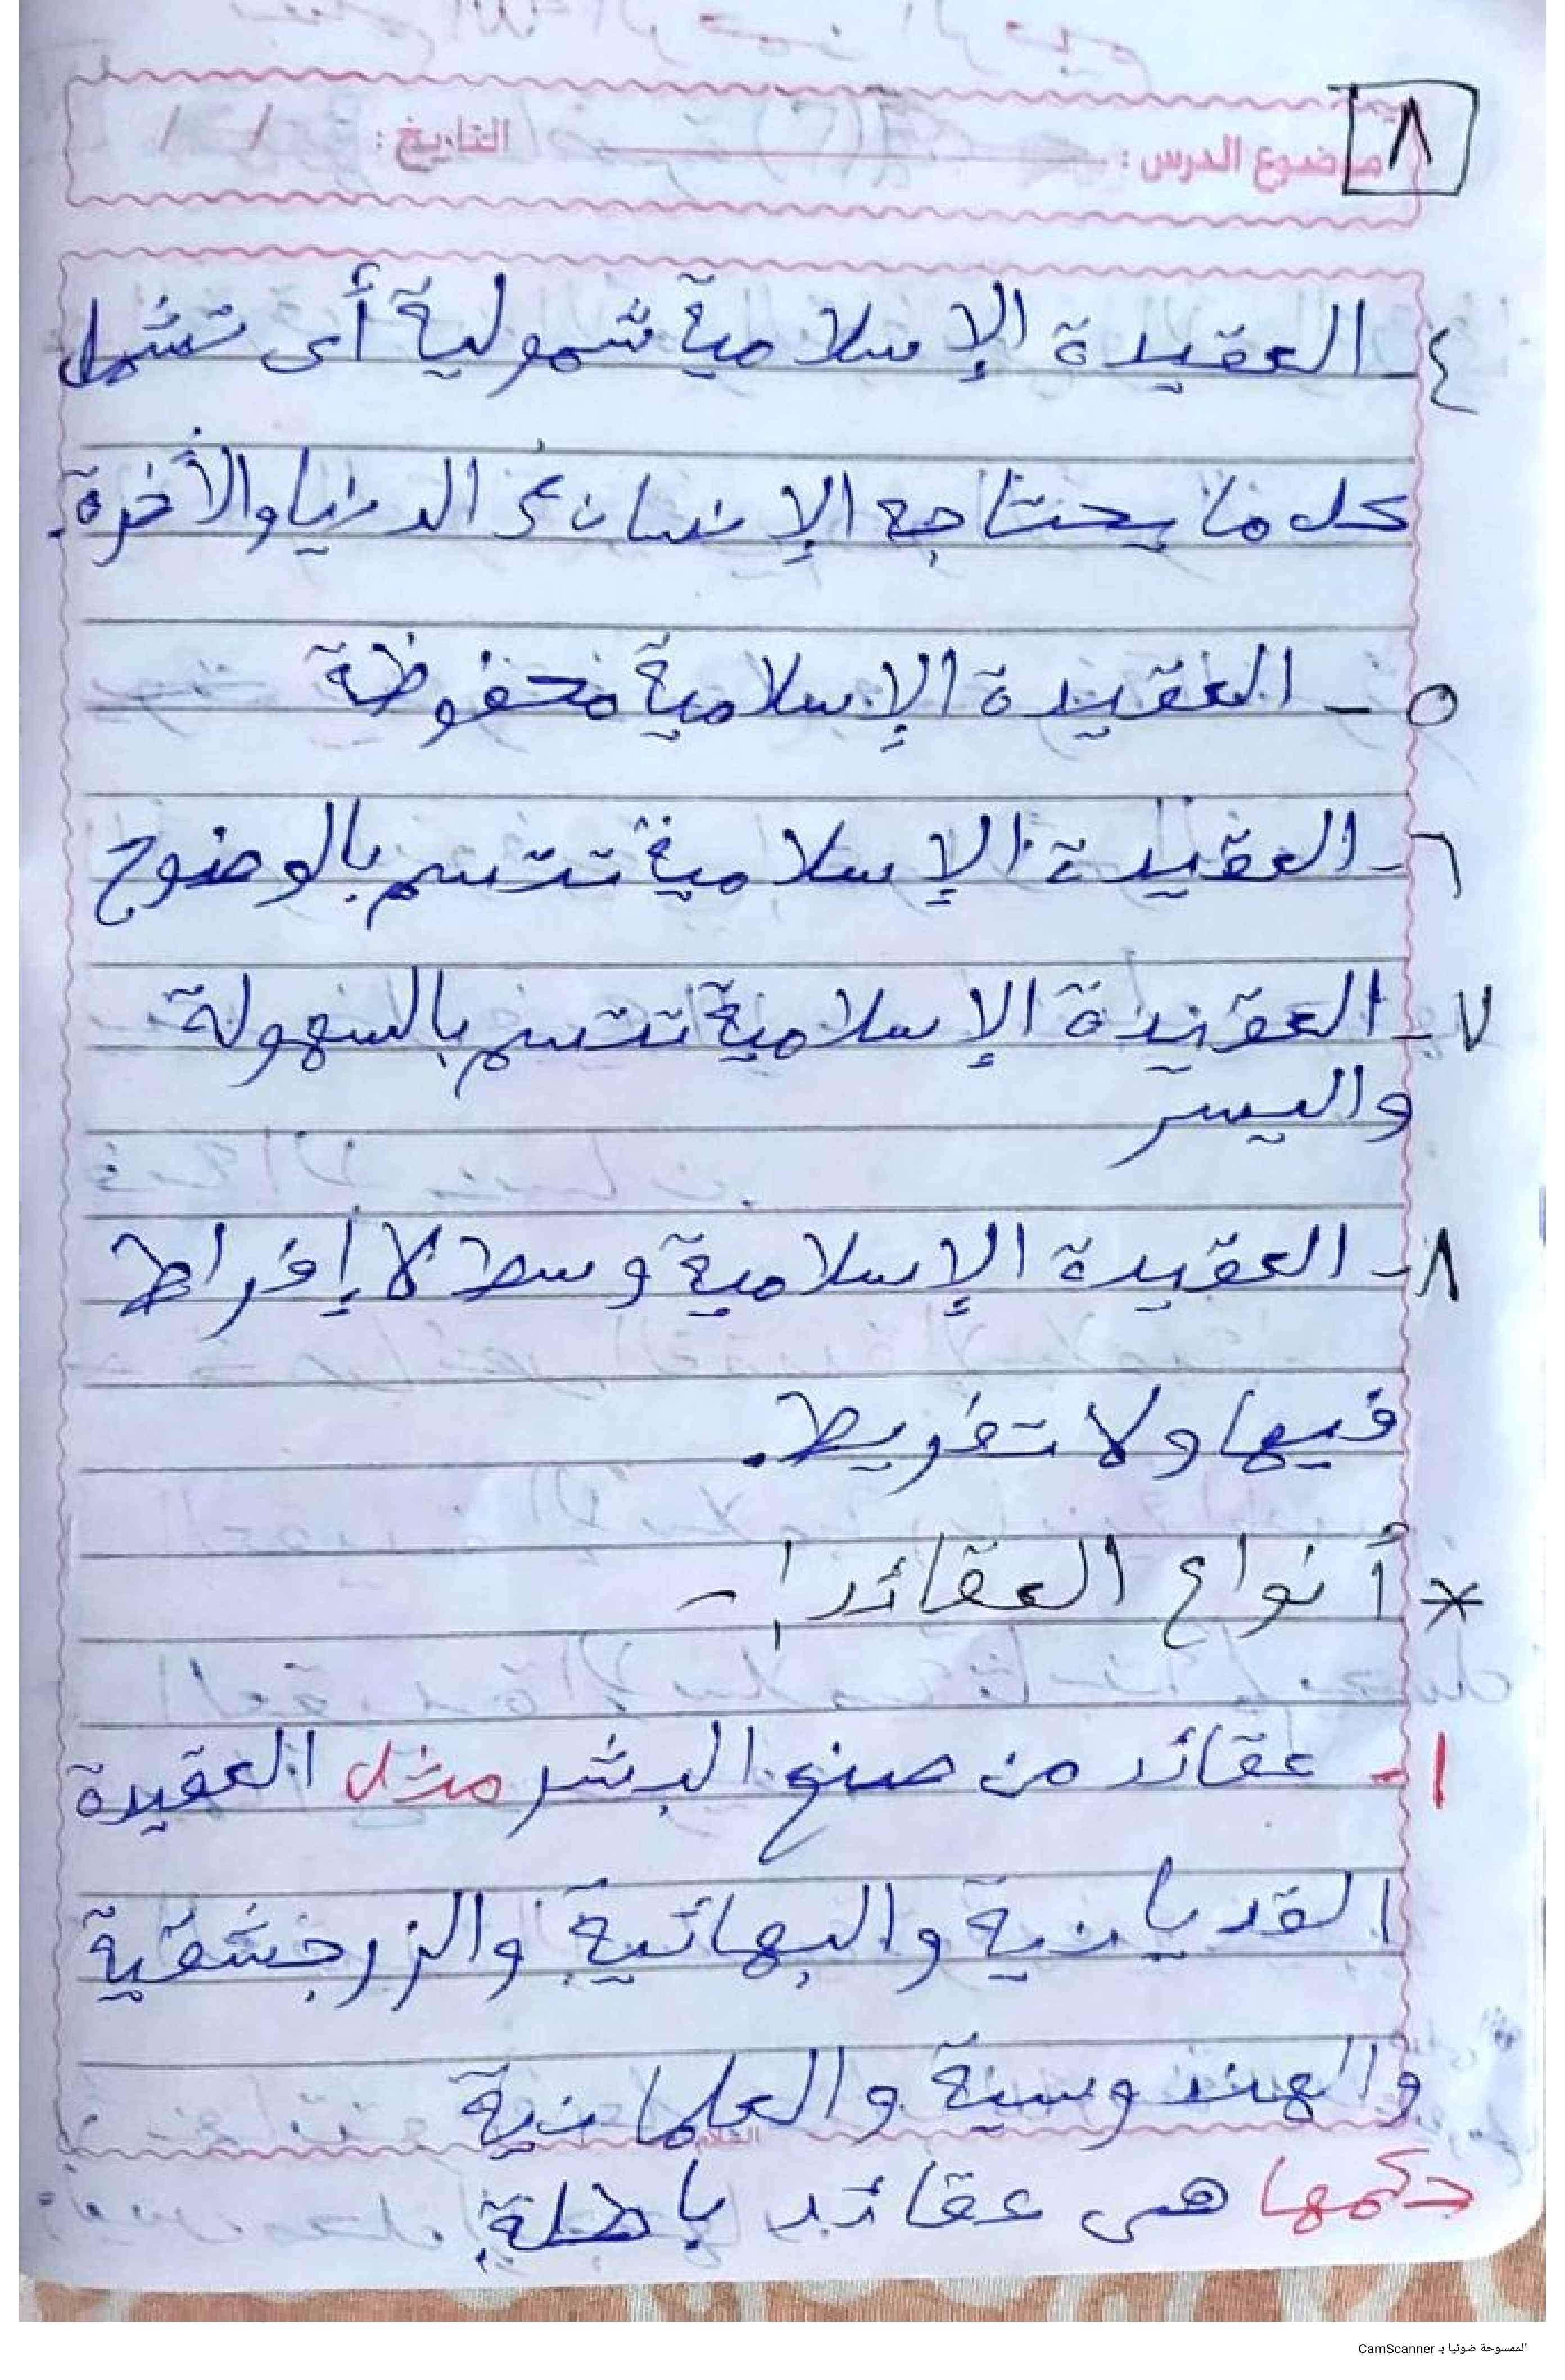 ٨
موضوع الدرس : التاريخ : / /
٤- العقيدة الإسلامية شمولية أى تشمل
كل ما يحتاجه الإنسان فى الدنيا والأخرة.
٥- العقيدة الإسلامية محفوظة
٦- العقيدة الإسلامية تتسم بالوضوح
٧- العقيدة الإسلامية تتسم بالسهولة
واليسر
٨- العقيدة الإسلامية وسط لا إفراط
فيها ولا تفريط.
* أنواع العقائد :-
١- عقائد من صنع البشر مثل العقيدة
القديانية والبهائية والزرجشقية
والهندوسية والعلمانية
حكمها هى عقائد باطلة
الممسوحة ضوئيا بـ CamScanner